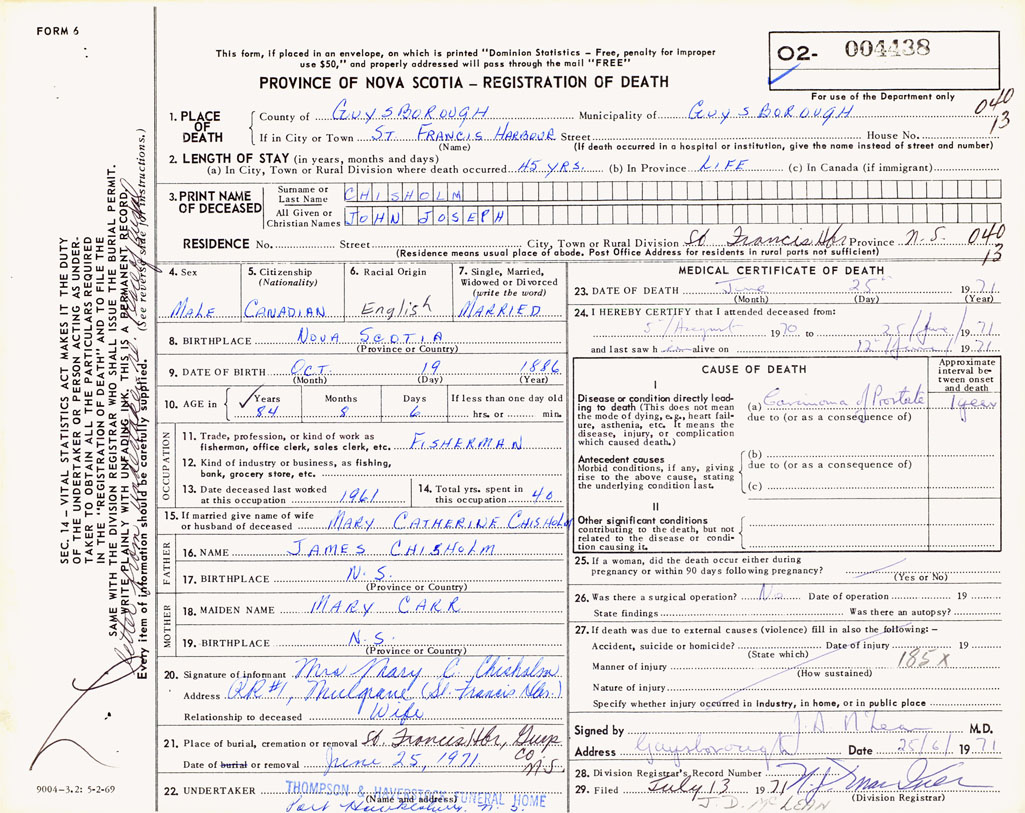 FORM 6
This form, if placed in an envelope, on which is printed "Dominion Statistics – Free, penalty for improper
use $50," and properly addressed will pass through the mail "FREE"
O2- 004438
PROVINCE OF NOVA SCOTIA – REGISTRATION OF DEATH
For use of the Department only
040
13
1. PLACE OF DEATH County of GUYSBOROUGH Municipality of GUYSBOROUGH
If in City or Town ST. FRANCIS HARBOUR Street House No.
(Name) (If death occurred in a hospital or institution, give the name instead of street and number)
2. LENGTH OF STAY (in years, months and days)
(a) In City, Town or Rural Division where death occurred 45 YRS. (b) In Province LIFE (c) In Canada (if immigrant)
3. PRINT NAME OF DECEASED Surname or Last Name CHISHOLM
All Given or Christian Names JOHN JOSEPH
RESIDENCE No. Street City, Town or Rural Division St Francis Hbr Province N.S. 040
13
(Residence means usual place of abode. Post Office Address for residents in rural parts not sufficient)
4. Sex MALE
5. Citizenship (Nationality) CANADIAN
6. Racial Origin English
7. Single, Married, Widowed or Divorced (write the word) MARRIED
8. BIRTHPLACE NOVA SCOTIA
(Province or Country)
9. DATE OF BIRTH OCT. 19 1886
(Month) (Day) (Year)
10. AGE in Years 84 Months 8 Days 6 If less than one day old hrs. or min.
OCCUPATION
11. Trade, profession, or kind of work as fisherman, office clerk, sales clerk, etc. FISHERMAN
12. Kind of industry or business, as fishing, bank, grocery store, etc.
13. Date deceased last worked at this occupation 1961
14. Total yrs. spent in this occupation 40
15. If married give name of wife or husband of deceased MARY CATHERINE CHISHOLM
FATHER
16. NAME JAMES CHISHOLM
17. BIRTHPLACE N.S.
(Province or Country)
MOTHER
18. MAIDEN NAME MARY CARR
19. BIRTHPLACE N.S.
(Province or Country)
20. Signature of informant Mrs Mary C. Chisholm
Address RR#1, Mulgrave (St. Francis Hbr.)
Relationship to deceased Wife
21. Place of burial, cremation or removal St Francis Hbr, Guys Co N.S.
Date of burial or removal June 25, 1971
22. UNDERTAKER THOMPSON & HAVERSTOCK FUNERAL HOME
(Name and address) Port Hawkesbury, N.S.
MEDICAL CERTIFICATE OF DEATH
23. DATE OF DEATH June 25 1971
(Month) (Day) (Year)
24. I HEREBY CERTIFY that I attended deceased from:
5/August 1970 to 25/June/ 1971
and last saw him alive on 1971
CAUSE OF DEATH
Approximate interval between onset and death
I
Disease or condition directly leading to death (This does not mean the mode of dying, e.g., heart failure, asthenia, etc. It means the disease, injury, or complication which caused death.)
(a) Carcinoma of Prostate 1 year
due to (or as a consequence of)
Antecedent causes
Morbid conditions, if any, giving rise to the above cause, stating the underlying condition last.
(b)
due to (or as a consequence of)
(c)
II
Other significant conditions contributing to the death, but not related to the disease or condition causing it.
25. If a woman, did the death occur either during pregnancy or within 90 days following pregnancy?
(Yes or No)
26. Was there a surgical operation? No Date of operation 19
State findings Was there an autopsy?
27. If death was due to external causes (violence) fill in also the following: –
Accident, suicide or homicide? Date of injury 19
(State which)
185X
Manner of injury
(How sustained)
Nature of injury
Specify whether injury occurred in industry, in home, or in public place
Signed by M.D.
Address Guysborough Date 25/6/ 1971
28. Division Registrar's Record Number
29. Filed July 13 1971
(Division Registrar)
J. D. McLEAN
SEC. 14 – VITAL STATISTICS ACT MAKES IT THE DUTY
OF THE UNDERTAKER OR PERSON ACTING AS UNDER-
TAKER TO OBTAIN ALL THE PARTICULARS REQUIRED
IN THE "REGISTRATION OF DEATH" AND TO FILE THE
SAME WITH THE DIVISION REGISTRAR WHO SHALL ISSUE THE BURIAL PERMIT.
WRITE PLAINLY WITH UNFADING INK. THIS IS A PERMANENT RECORD
Every item of information should be carefully supplied. (See reverse side for instructions.)
Letter from Undertaker
9004-3.2: 5-2-69